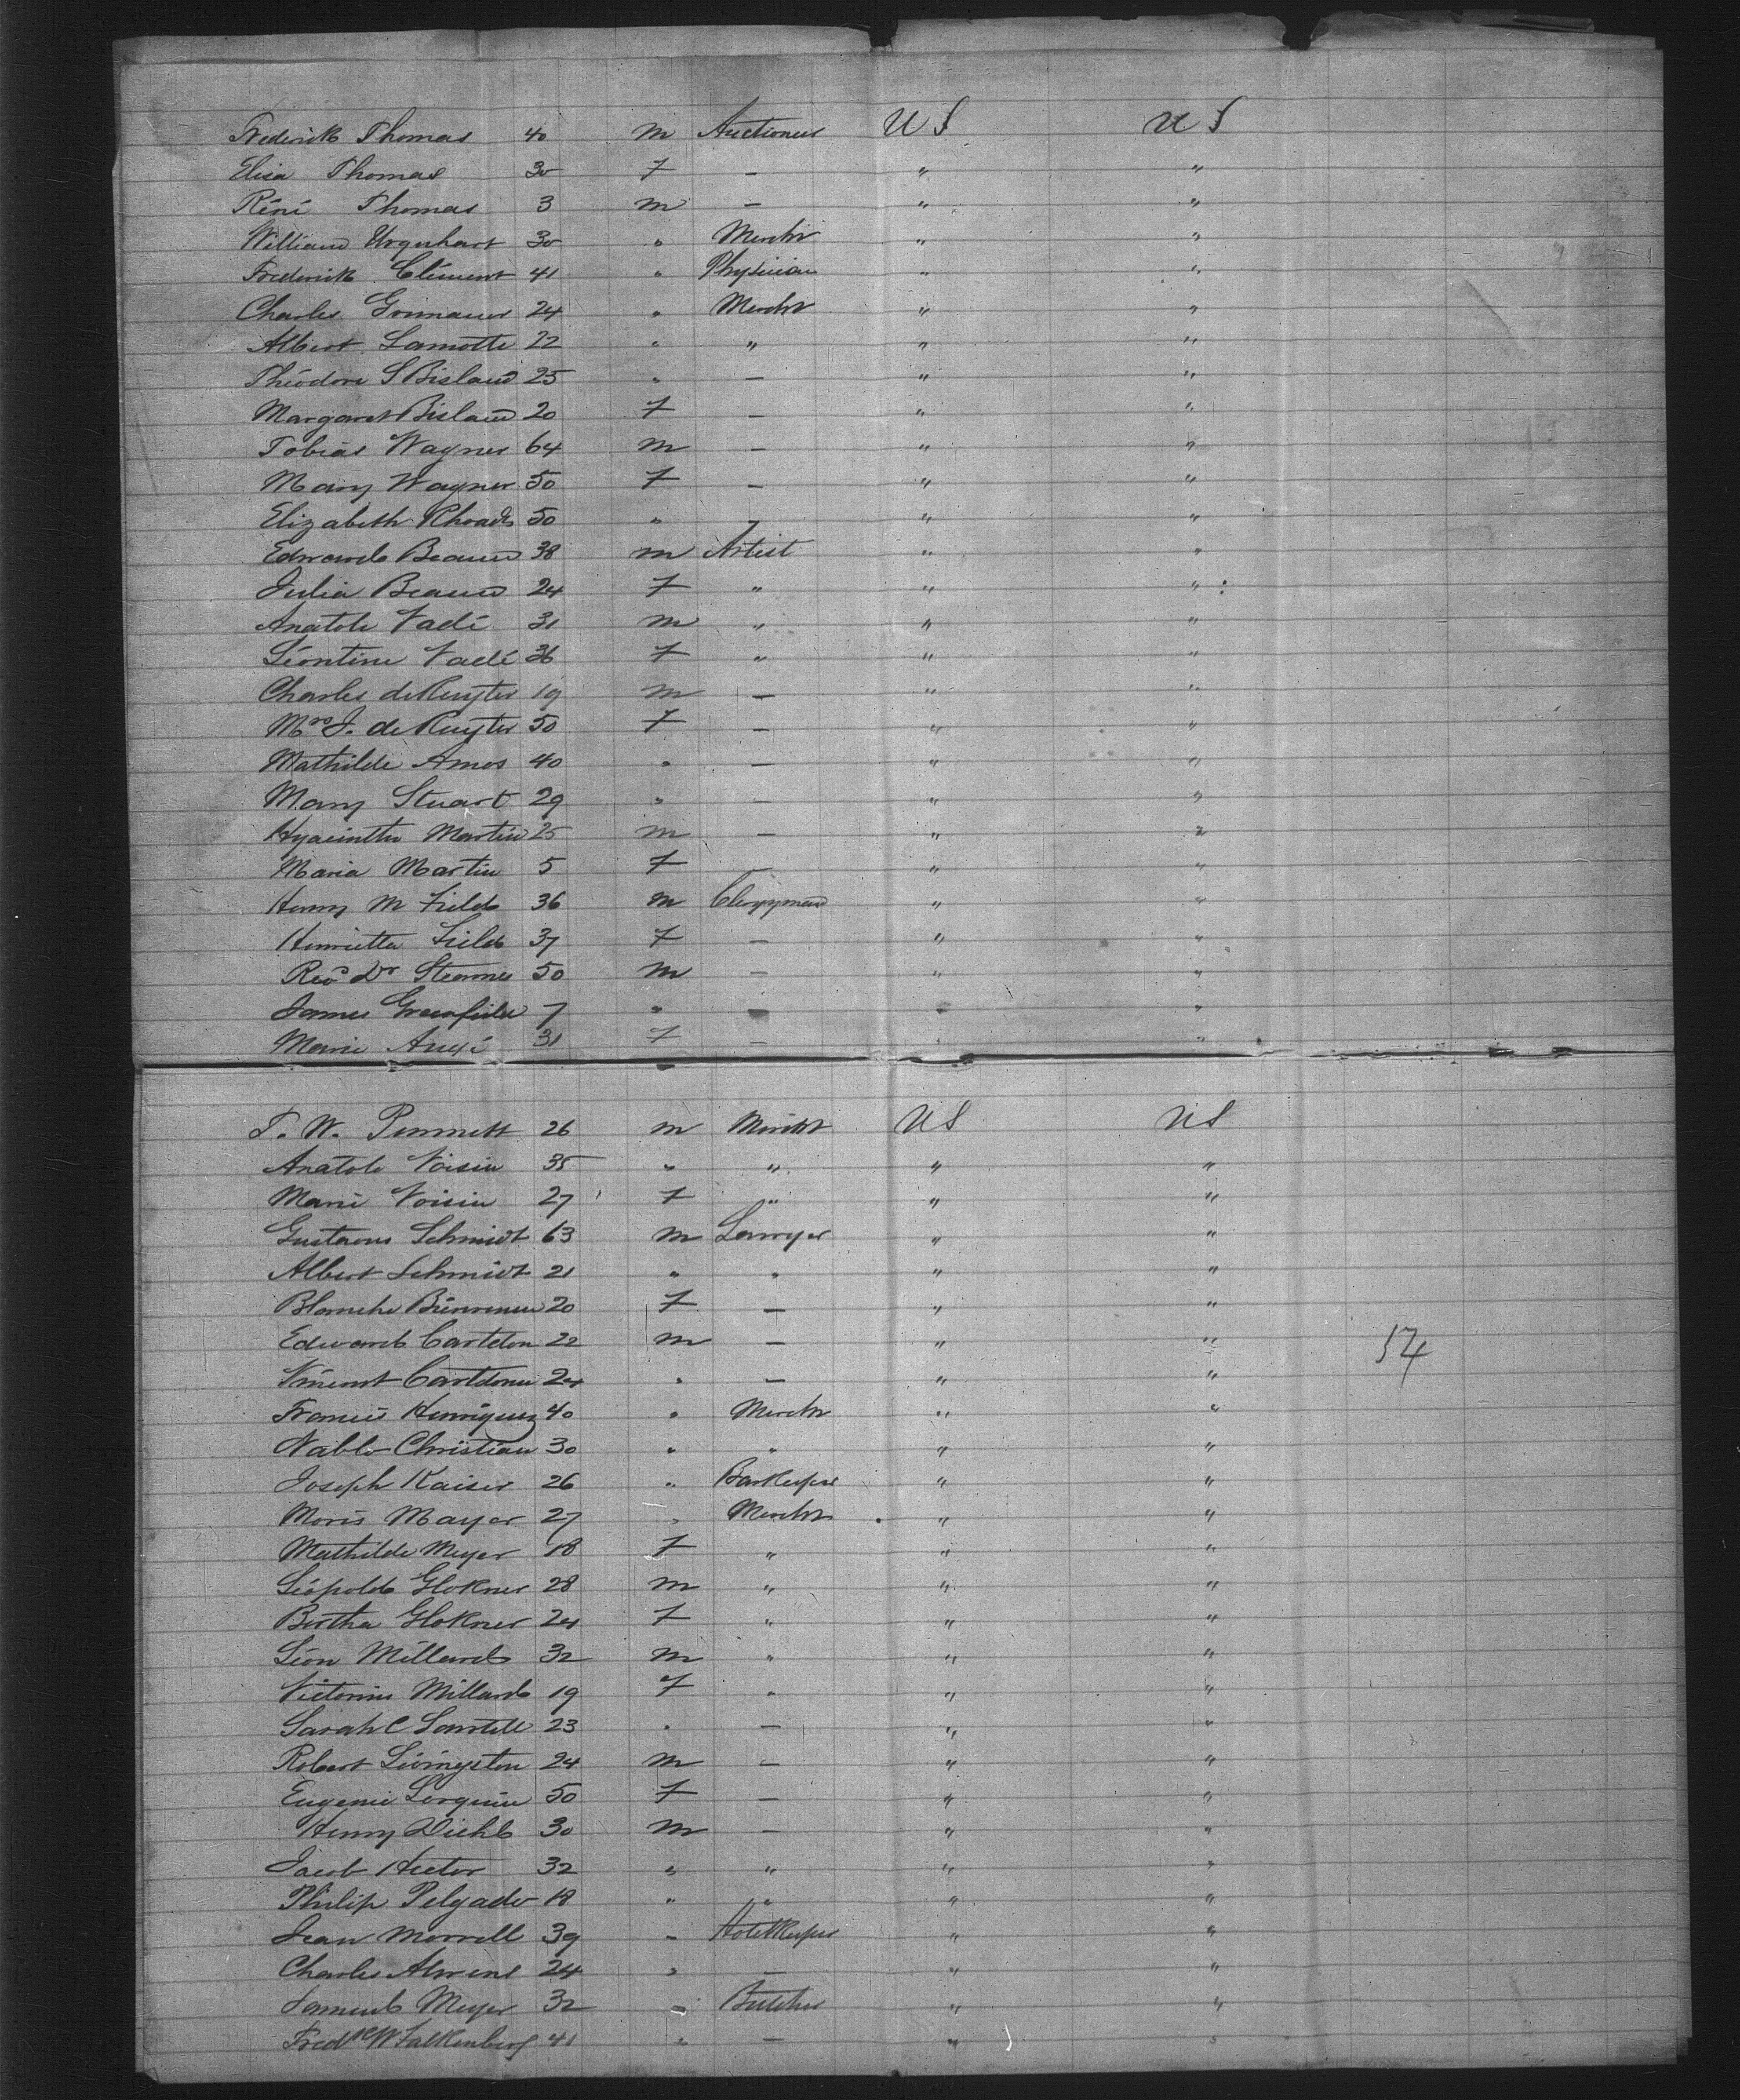 Frederick Thomas 40 m Auctioneer U S U S
Elisa Thomas 30 F — " "
Réné Thomas 3 m — " "
William Urquhart 30 " Mercht " "
Frederick Clément 41 " Physician " "
Charles 24 " Mercht " "
Albert Lamotte 22 " " " "
Théodore S Bisland 25 " — " "
Margaret Bisland 20 F — " "
Tobias Wagner 64 m — " "
Mary Wagner 50 F — " "
Elizabeth Rhoads 50 " — " "
Edward 38 m Artist " "
Julia 24 F " " "
Anatole Vadé 31 m " " "
Léontine Vadé 36 F " " "
Charles de Ruyter 19 m — " "
Mrs J. de Ruyter 50 F — " "
Mathilde Amos 40 " — " "
Mary Stuart 29 " — " "
Hyacinthe Martin 25 m — " "
Maria Martin 5 F — " "
Henry M Field 36 m Clergyman " "
Henrietta Field 37 F — " "
Revd Dr Stearns 50 m — " "
James Greenfield 7 " — " "
Marie 31 F — " "
T. W. 26 m Mercht U S U S
Anatole Voisin 35 " " " "
Marie Voisin 27 F " " "
Gustavus Schmidt 63 m Lawyer " "
Albert Schmidt 21 " " " "
Blanche Bienvenu 20 F — " "
Edward Carleton 22 m — " " 54
Vincent 24 " — " "
Francis Henriquez 40 " Mercht " "
Christian 30 " " " "
Joseph Kaiser 26 " Barkeeper " "
Moris Mayer 27 " Mercht " "
Mathilde Meyer 18 F " " "
Léopold Glokner 28 m " " "
Bertha Glokner 24 F " " "
Léon Millard 32 m " " "
Victorine Millard 19 F " " "
Sarah C 23 " — " "
Robert Livingston 24 m — " "
Eugenie Lorquin 50 F — " "
Henry Diehl 30 m — " "
Jacob Hector 32 " " " "
Philip Pelgado 18 " " " "
Jean Morrell 39 " Hotelkeeper " "
Charles 24 " — " "
Samuel Meyer 32 " Butcher " "
Fredk W Falkenberg 41 " — " "